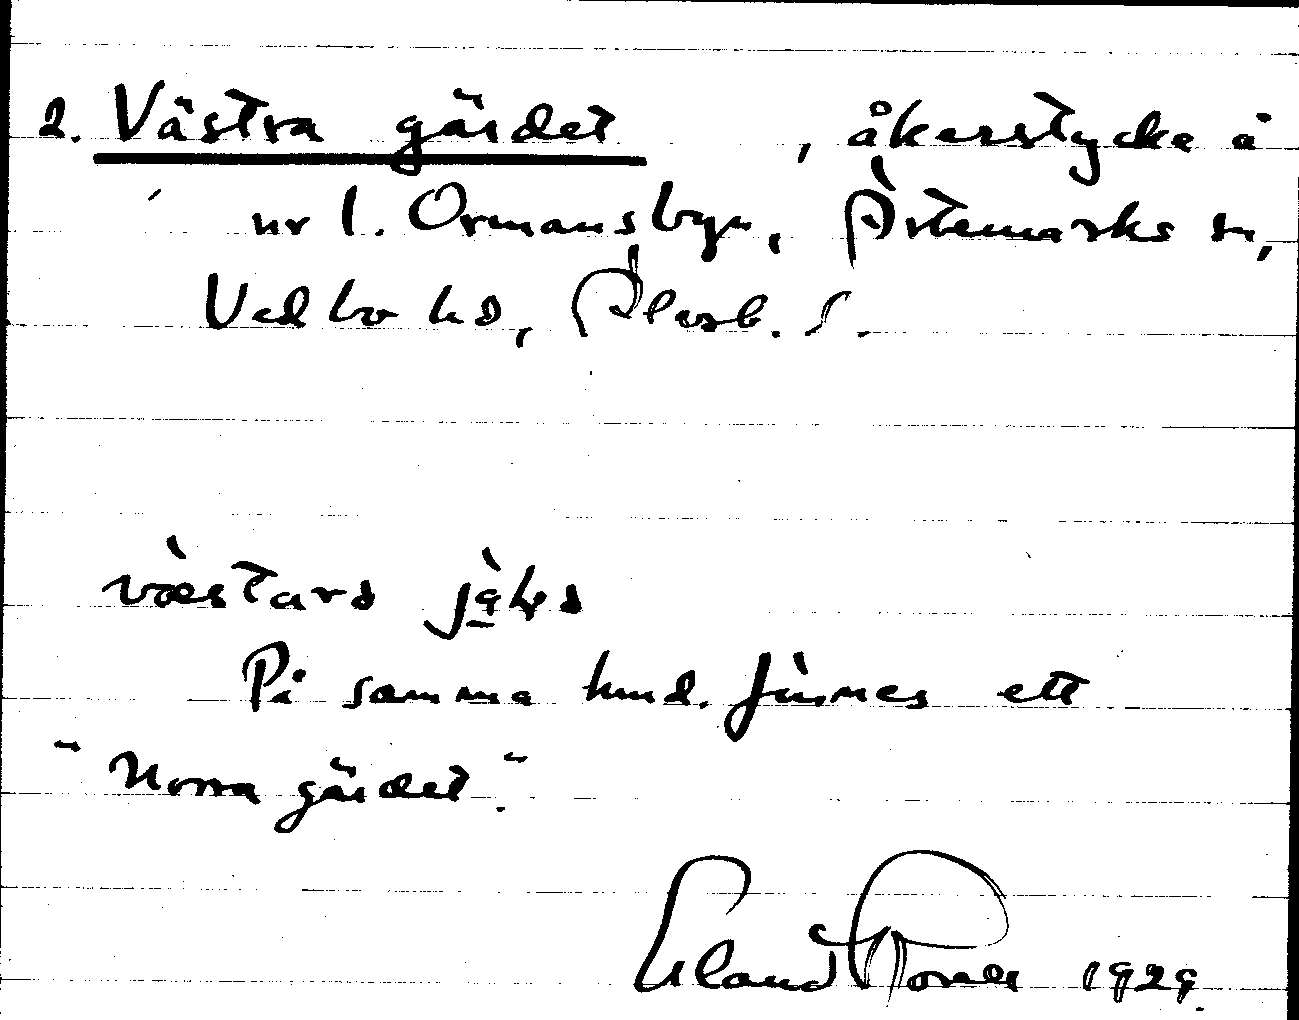 2. Västra gärdet, åkerstycke å
nr 1. Ormansbyn, Ärtemarks sn,
Vedbo hd, Älvsb. l.
På samma hmd. finnes ett
"Norra gärdet".
Erland Rosell 1929.